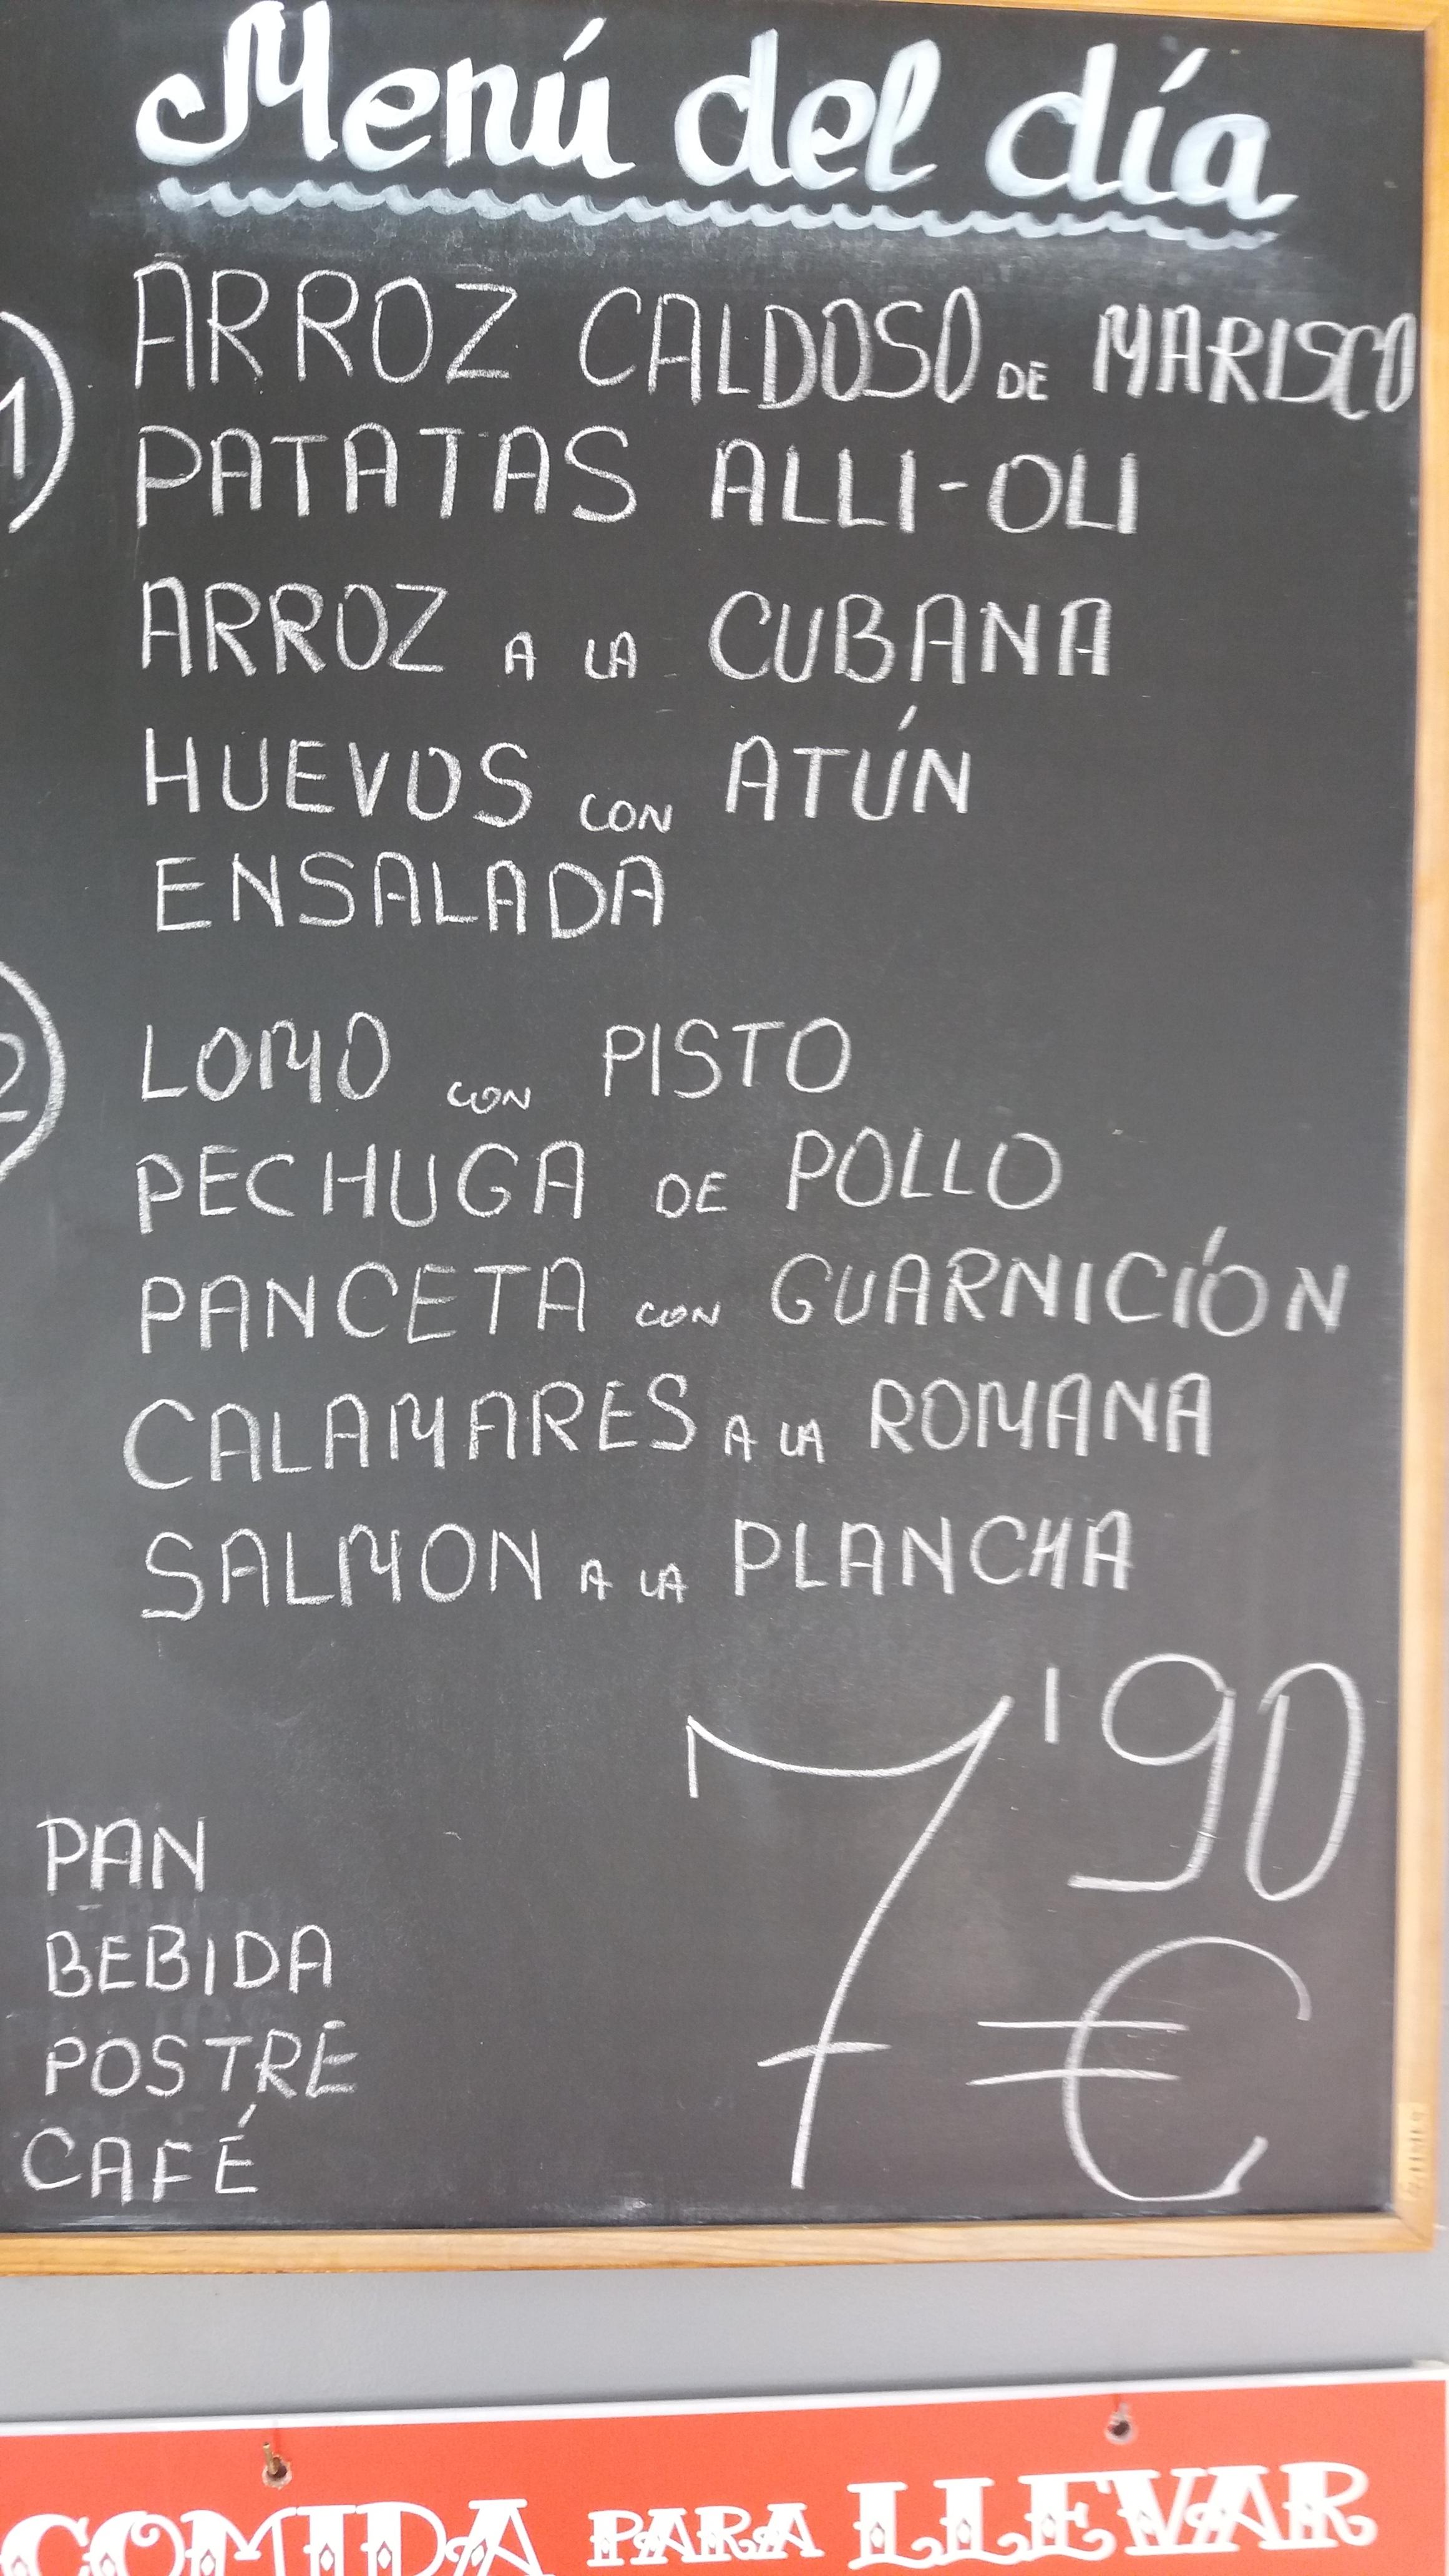 Menú del día
1 ARROZ CALDOSO DE MARISCO
PATATAS ALLI-OLI
ARROZ A LA CUBANA
HUEVOS CON ATÚN
ENSALADA
2 LOMO CON PISTO
PECHUGA DE POLLO
PANCETA CON GUARNICIÓN
CALAMARES A LA ROMANA
SALMON A LA PLANCHA
7'90 €
PAN
BEBIDA
POSTRE
CAFÉ
COMIDA PARA LLEVAR